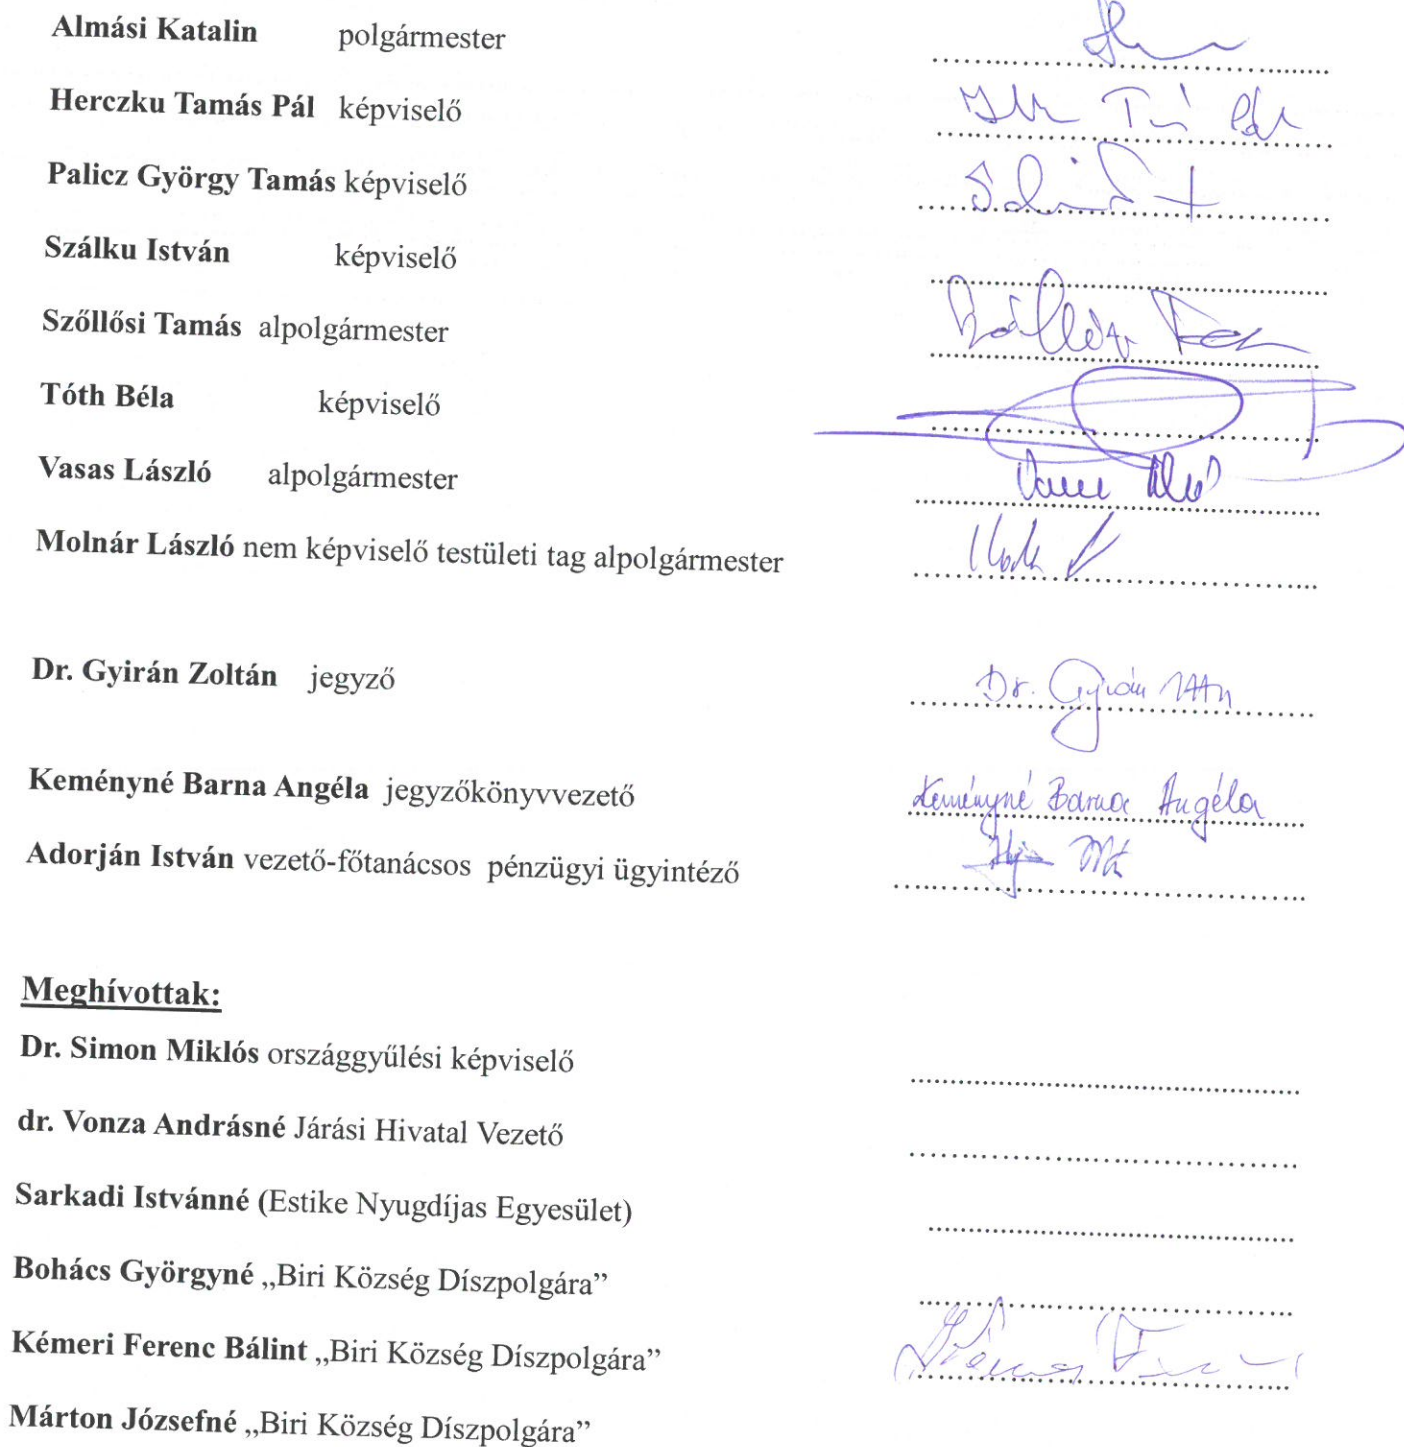 Almási Katalin polgármester
Herczku Tamás Pál képviselő
Palicz György Tamás képviselő
Szálku István képviselő
Szőllősi Tamás alpolgármester
Tóth Béla képviselő
Vasas László alpolgármester
Molnár László nem képviselő testületi tag alpolgármester
Dr. Gyirán Zoltán jegyző Dr. Gyirán
Keményné Barna Angéla jegyzőkönyvvezető Keményné Barna Angéla
Adorján István vezető-főtanácsos pénzügyi ügyintéző
Meghívottak:
Dr. Simon Miklós országgyűlési képviselő
dr. Vonza Andrásné Járási Hivatal Vezető
Sarkadi Istvánné (Estike Nyugdíjas Egyesület)
Bohács Györgyné „Biri Község Díszpolgára”
Kémeri Ferenc Bálint „Biri Község Díszpolgára”
Márton Józsefné „Biri Község Díszpolgára”